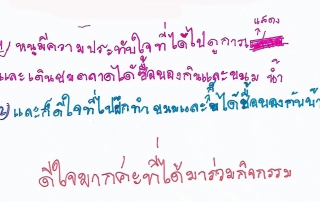 แสดง
1) หนูมีความประทับใจที่ได้ไปดูการ
และเดินชมตลาดได้ซื้อของกินและขนม น้ำ
2) และก็ดีใจที่ไปฝึกทำขนมและก็ได้ซื้อของกินน้ำ
ดีใจมากค่ะที่ได้มาร่วมกิจกรรม